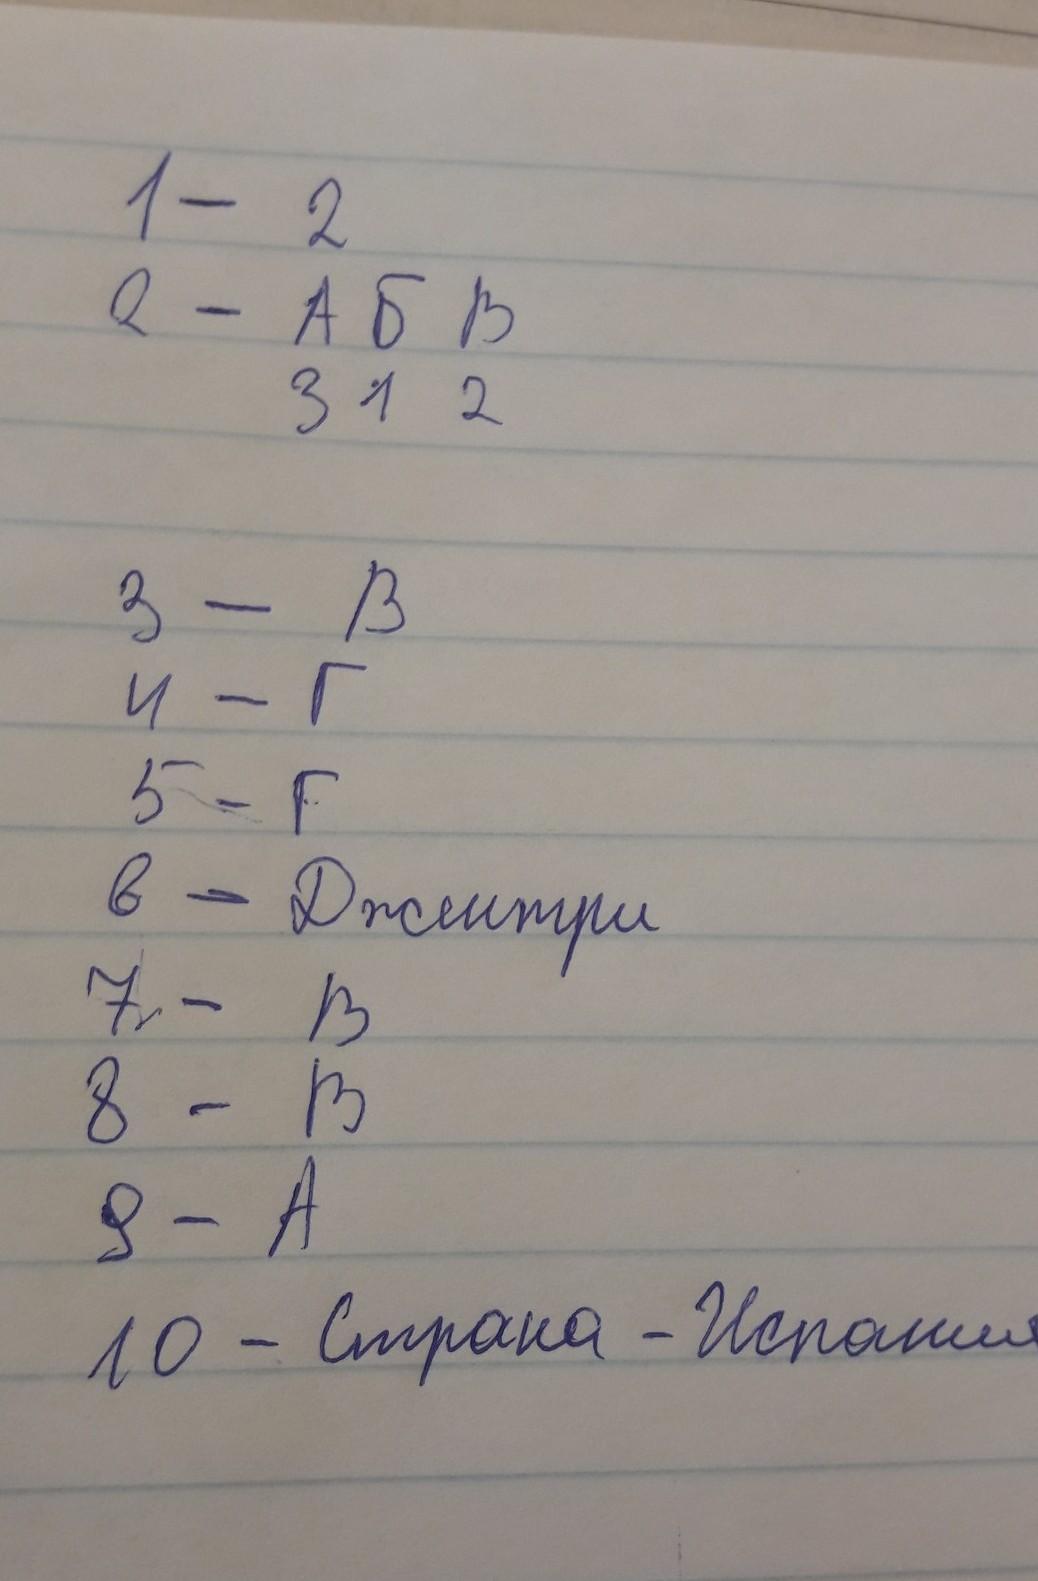 1 - 2
2 - А Б В
3 1 2
3 - В
4 - Г
5 - Г
6 - Джентри
7 - В
8 - В
9 - А
10 - Страна - Испания